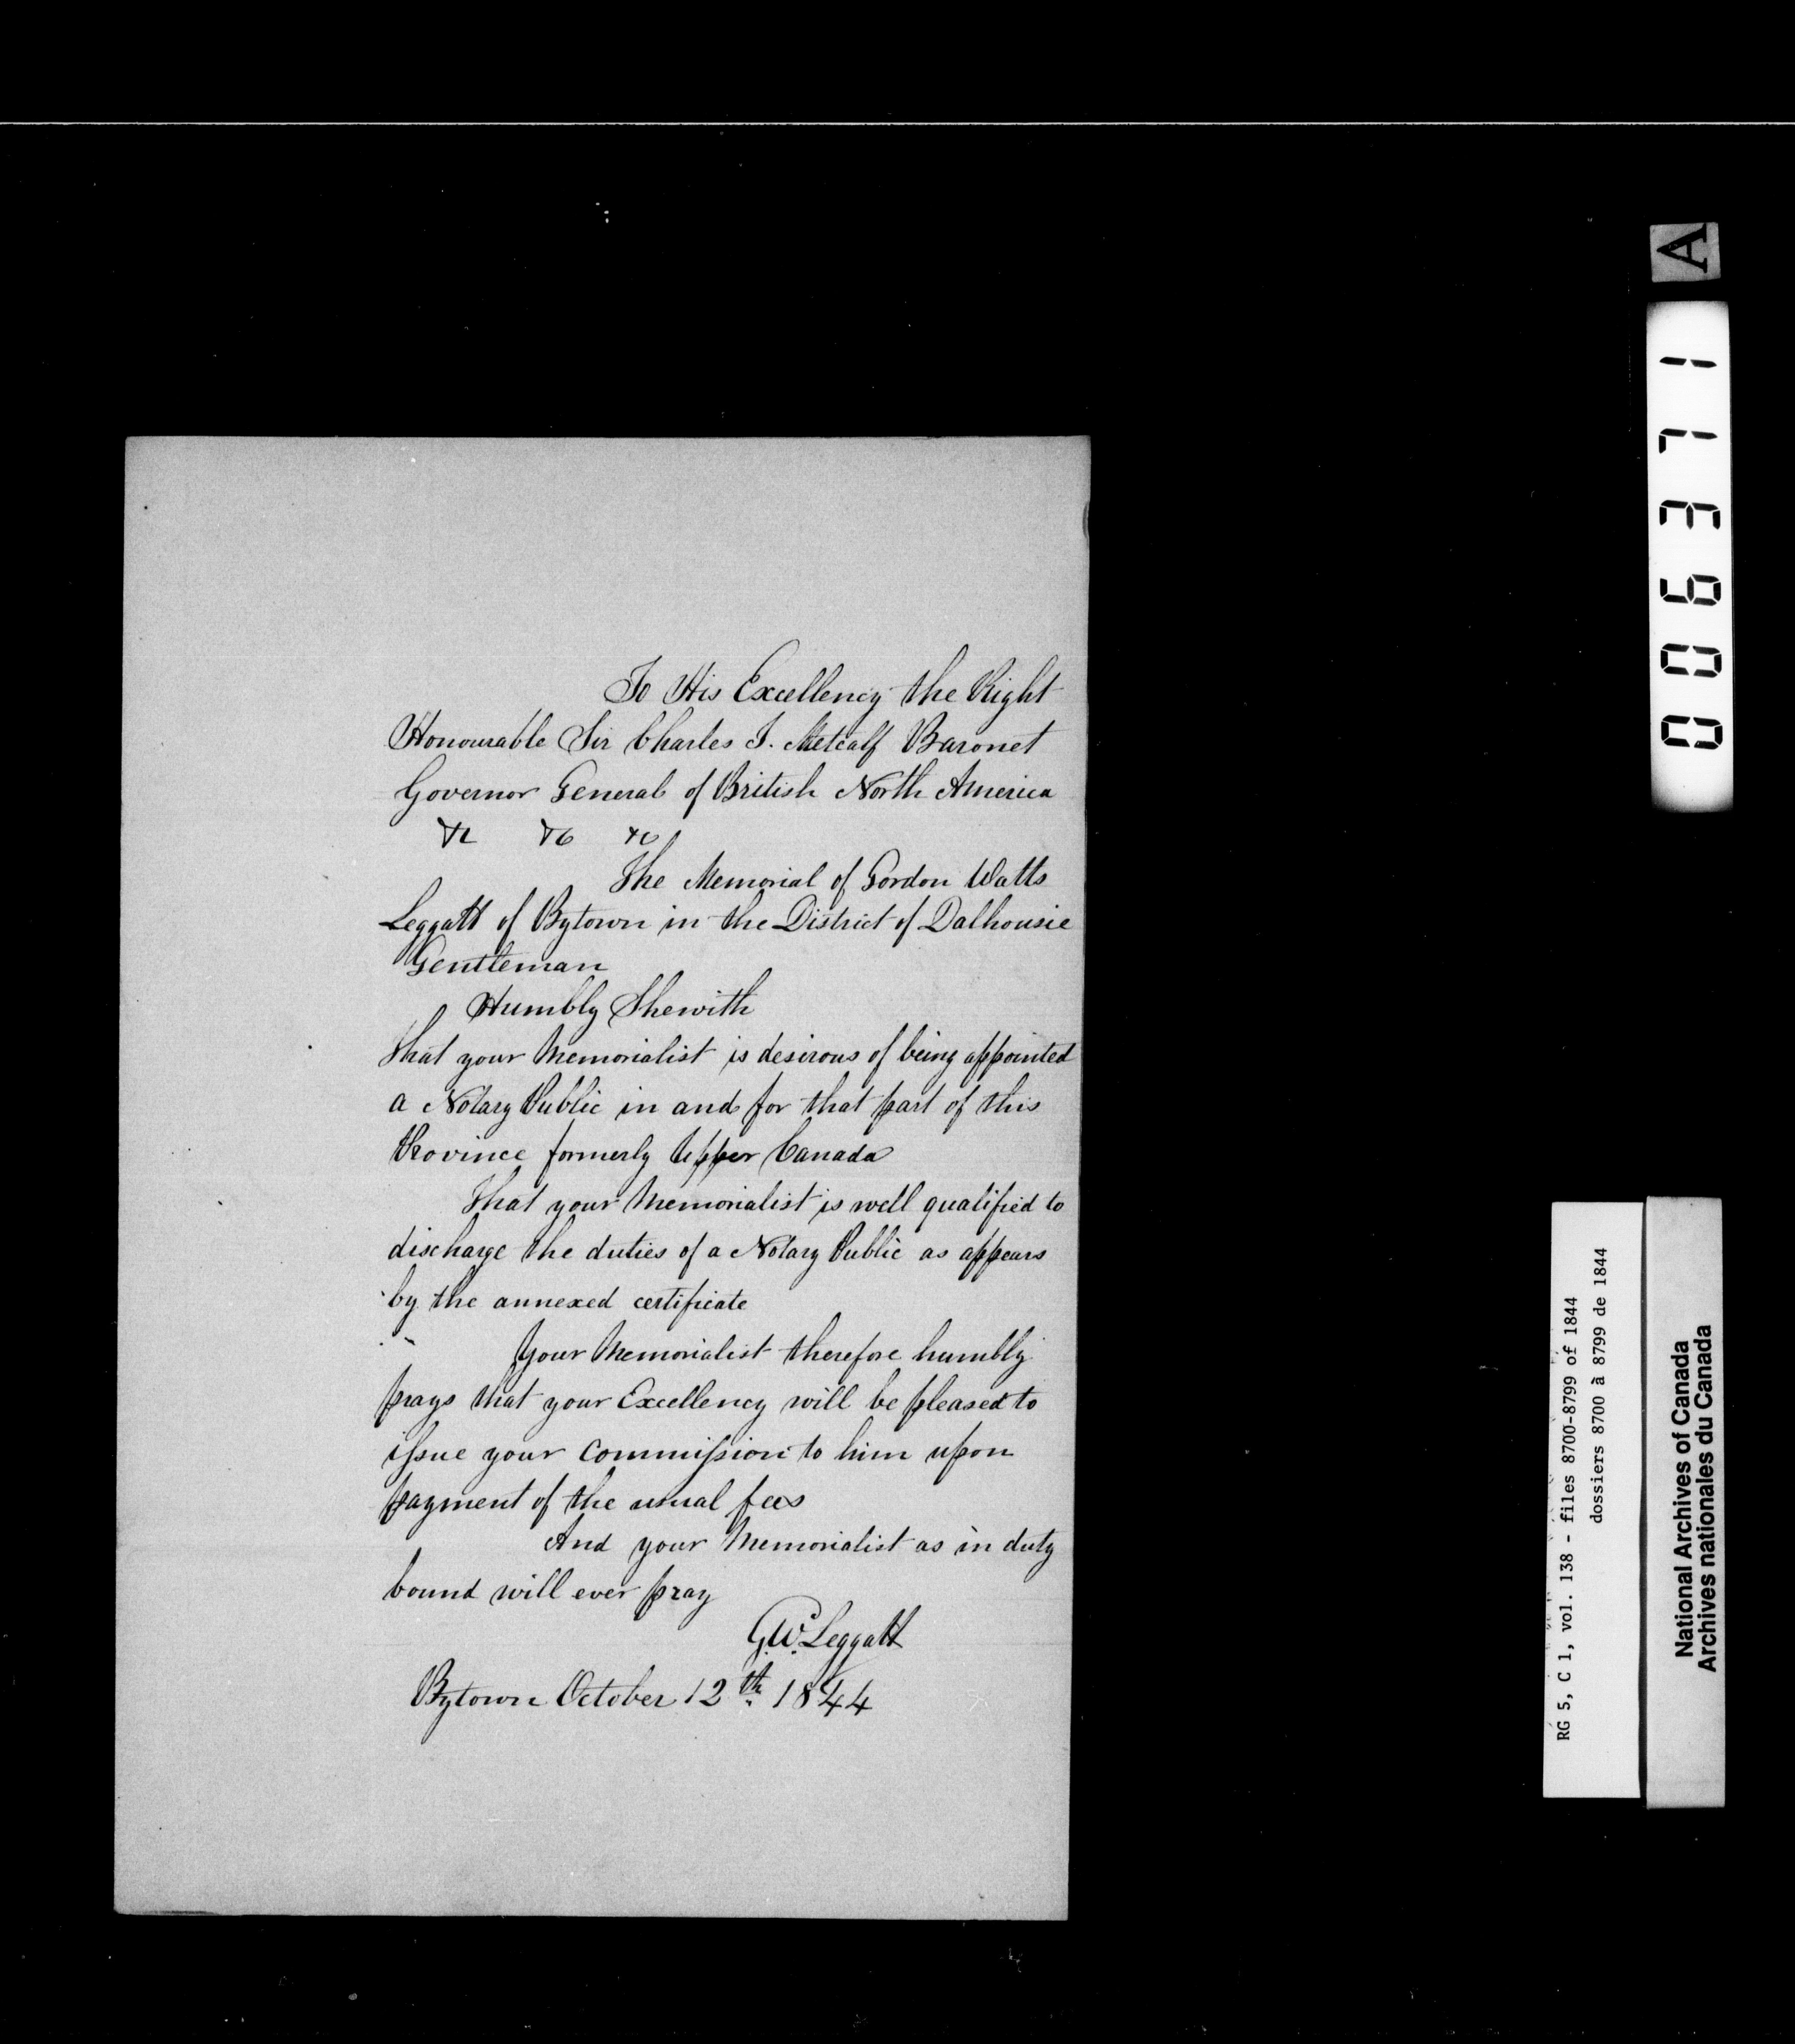 To His Excellency the Right
Honourable Sir Charles T. Metcalf Baronet
Governor General of British North America
&c &c &c
The Memorial of Gordon Watts
Leggatt of Bytown in the District of Dalhousie
Gentleman
Humbly Shewith
That your Memorialist is desirous of being appointed
a Notary Public in and for that part of this
Province formerly Upper Canada
That your Memorialist is well qualified to
discharge the duties of a Notary Public as appears
by the annexed certificate
Your Memorialist therefore humbly
prays that your Excellency will be pleased to
issue your Commission to him upon
payment of the usual fees
And your Memorialist as in duty
bound will ever pray
G.W. Leggatt
Bytown October 12th 1844
A
006371
RG 5, C 1, vol. 138 - files 8700-8799 of 1844
dossiers 8700 à 8799 de 1844
National Archives of Canada
Archives nationales du Canada